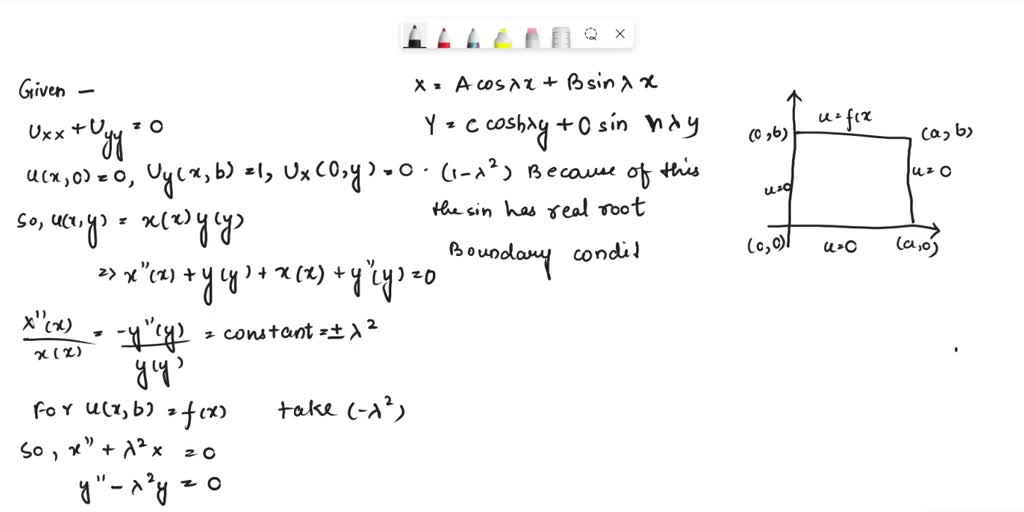 Given -
Uxx + Uyy = 0
u(x,0) = 0, Uy(x,b) = 1, Ux(0,y) = 0.
So, u(x,y) = x(x) y(y)
=> x''(x) + y(y) + x(x) + y''(y) = 0
x''(x)/x(x) = -y''(y)/y(y) = constant = ± λ²
For u(x,b) = f(x) take (-λ²)
So, x'' + λ²x = 0
y'' - λ²y = 0
x = A cosλx + B sinλx
Y = c coshλy + D sin hλy
(1-λ²) Because of this
the sin has real root
Boundary condit
u=f(x
(0,b)
(a,b)
u=0
u=0
(0,0)
u=0
(a,0)